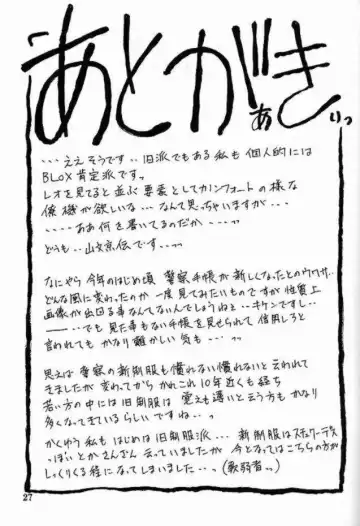 あとがき
ぁ りっ
・・・ええそうです・・旧派でもある私も個人的には
BLOX肯定派ですっ
レオを見てると並ぶ要素としてカノンフォートの様な
僚機が欲しいな・・・なんて思っちゃいますが・・・
・・・・・ああ何を書いてるのだか・・・・っっ
どうも・・山文京伝です・・・っっ
なにやら今年のはじめ頃 警察手帳が新しくなったとのウワサ・・
どんな風に変わったのか一度見てみたいものですが性質上
画像が出回る事なんてないんでしょうねぇ・・キケンですし・・
――・・・でも見た事もない手帳を見せられて信用しろと
言われてもかなり難かしい気も・・・っっ
思えば警察の新制服も慣れない慣れないと云われて
きましたが変わってからかれこれ10年近くも経ち
若い方の中には旧制服は覚えも遠いと云う方もかなり
多くなってきているらしいですね・・・っ
かくゆう私もはじめは旧制服派・・・新制服はスチュワーデス
っぽいとかさんざん云っていましたが今となってはこちらの方が
しっくりくる程になってしまいました・・・っ(軟弱者っっ)
27